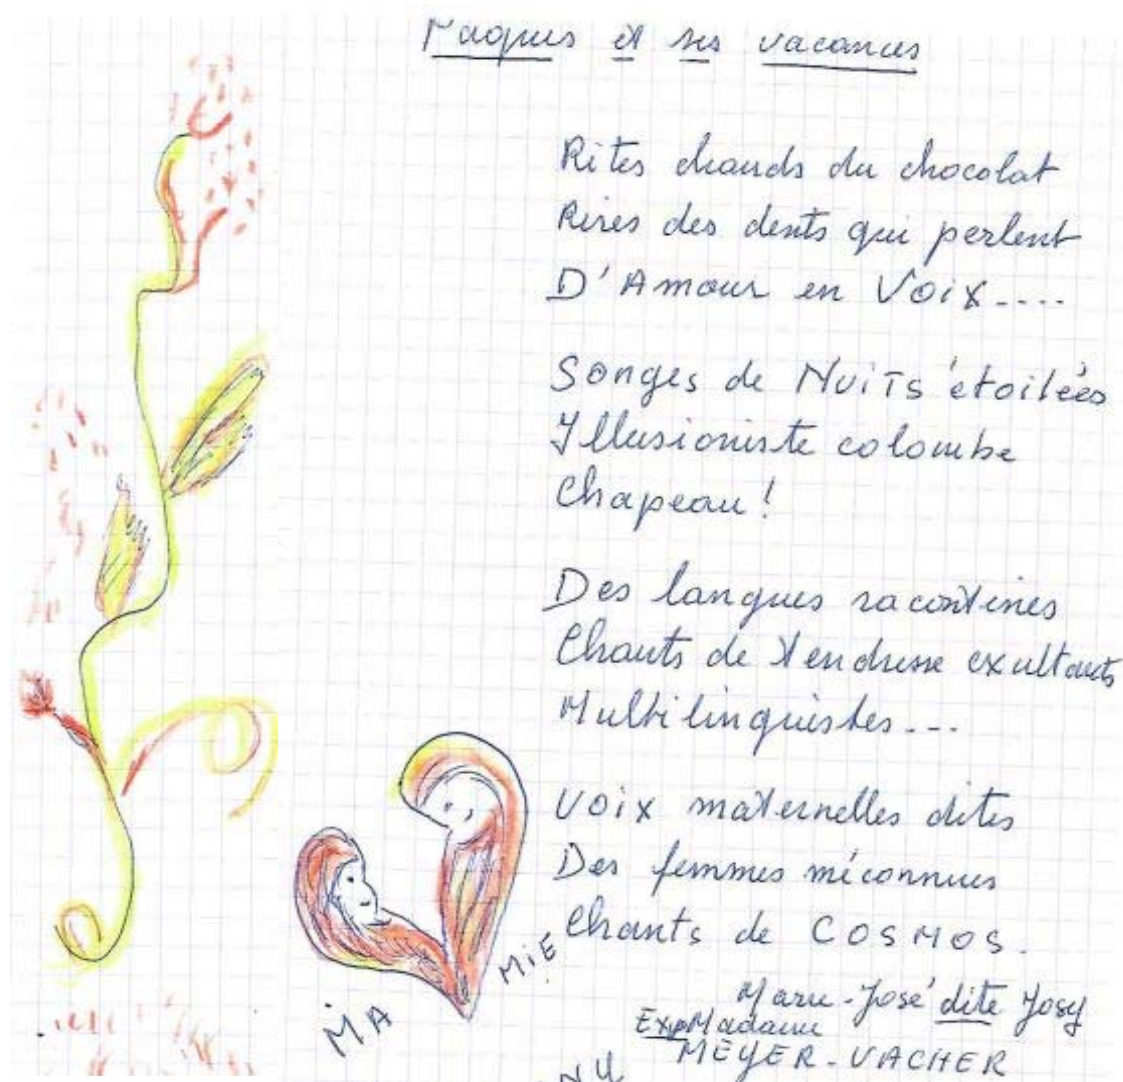 et ses vacances
Rites chauds du chocolat
Rires des dents qui perlent
D'Amour en Voix....
Songes de NuiTs étoilées
Illusioniste colombe
Chapeau !
Des langues racontines
Chants de tendresse exultants
Multilinguistes...
Voix maternelles dites
Des femmes méconnues
Chants de COSMOS.
MA
MiE
Marie-José dite Josy
Exp Madame
MEYER-VACHER